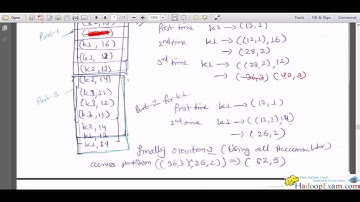 Part-1
(k1, 16)
(k1, 12)
(k2, 12)
Part-2
(k2, 14)
(k3, 11)
(k3, 12)
(k3, 11)
k2, 14
k1, 12
k1, 14
first time k1 → (13, 1)
2nd time k1 → ((12,1), 16)
→ (28, 2)
3rd time k1 → ((28,2), 12)
→ (36,3) (40,3)
Part-2 for k1
first time k1 → (12, 1)
2nd time k1 → ((12,1), 14)
→ (26, 2)
finally operations (Using all Accumulator)
across partition ((36,3)(26,2)) ⇒ (62, 5)
HadoopExam.com